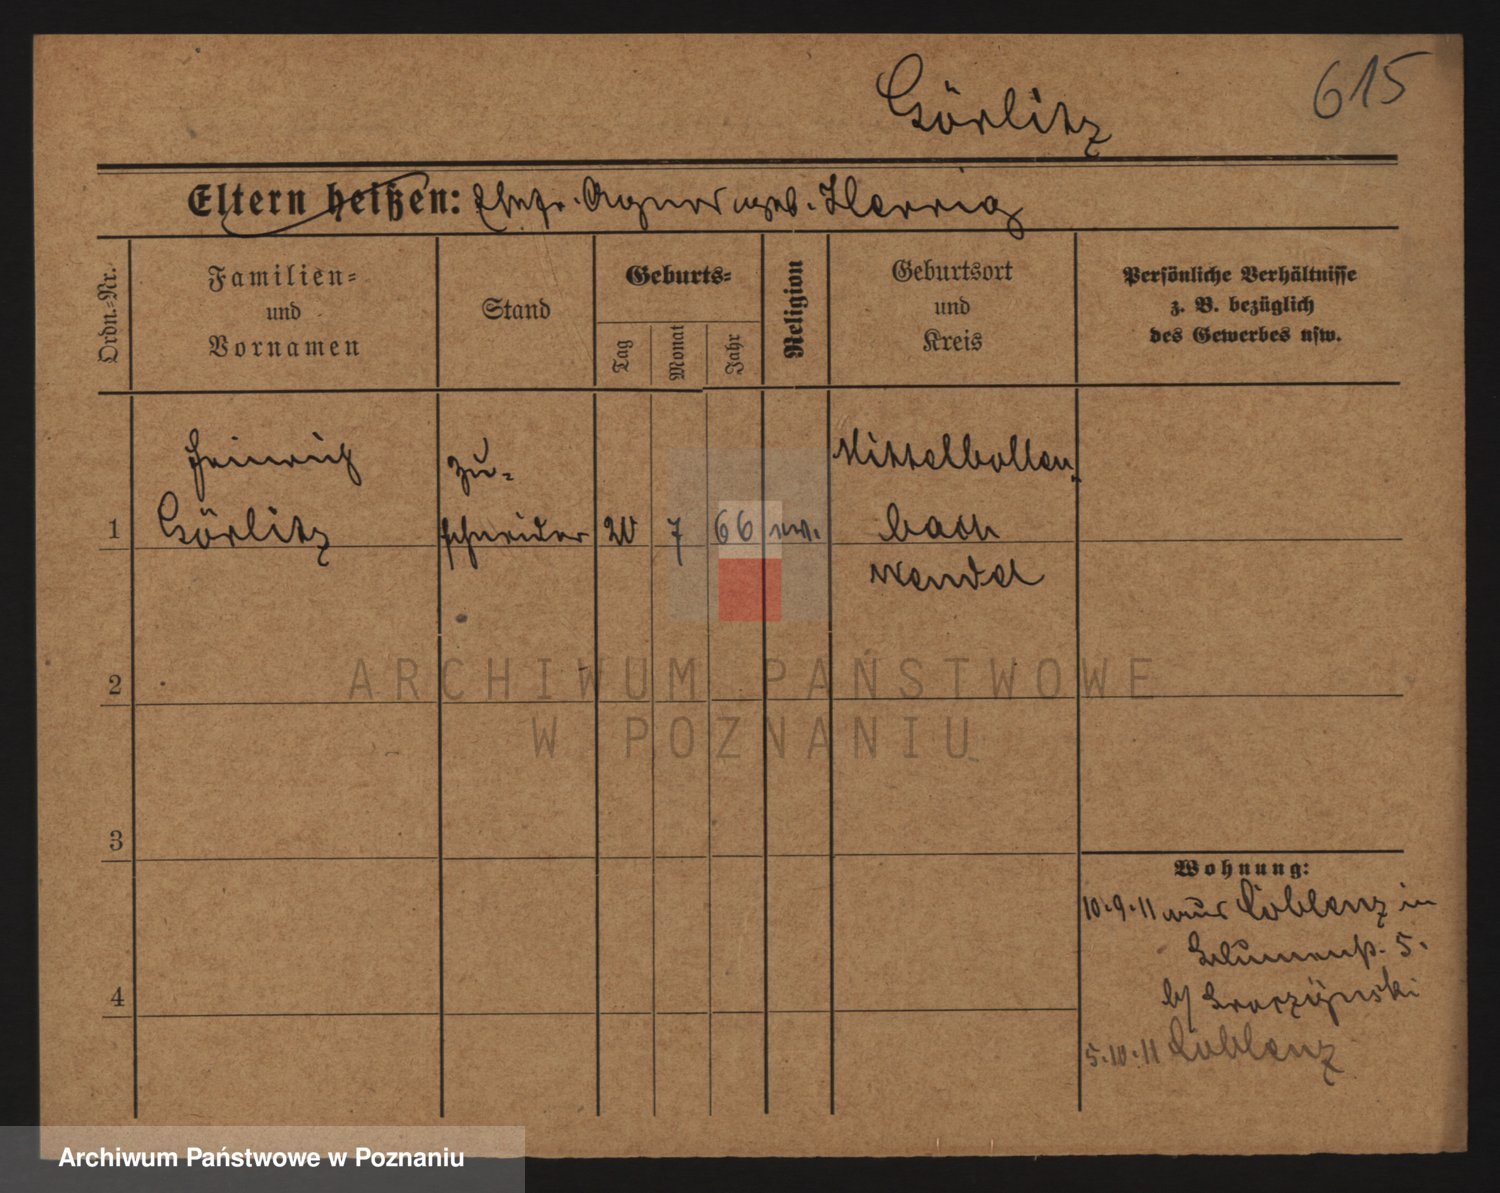 Görlitz
615
Eltern heißen: Ehefr. Agnes geb. Herrig
Ordn.-Nr.
Familien-
und
Vornamen
Stand
Geburts-
Tag
Monat
Jahr
Religion
Geburtsort
und
Kreis
Persönliche Verhältnisse
z. B. bezüglich
des Gewerbes usw.
1
Heinrich
Görlitz
Zu-
schneider
20
7
66
ev.
Mittelbollen-
bach
Wendel
2
3
4
Wohnung:
10.9.11 aus Coblenz in
Blumenstr. 5.
b/
5.10.11 Coblenz
ARCHIWUM PAŃSTWOWE
W POZNANIU
Archiwum Państwowe w Poznaniu